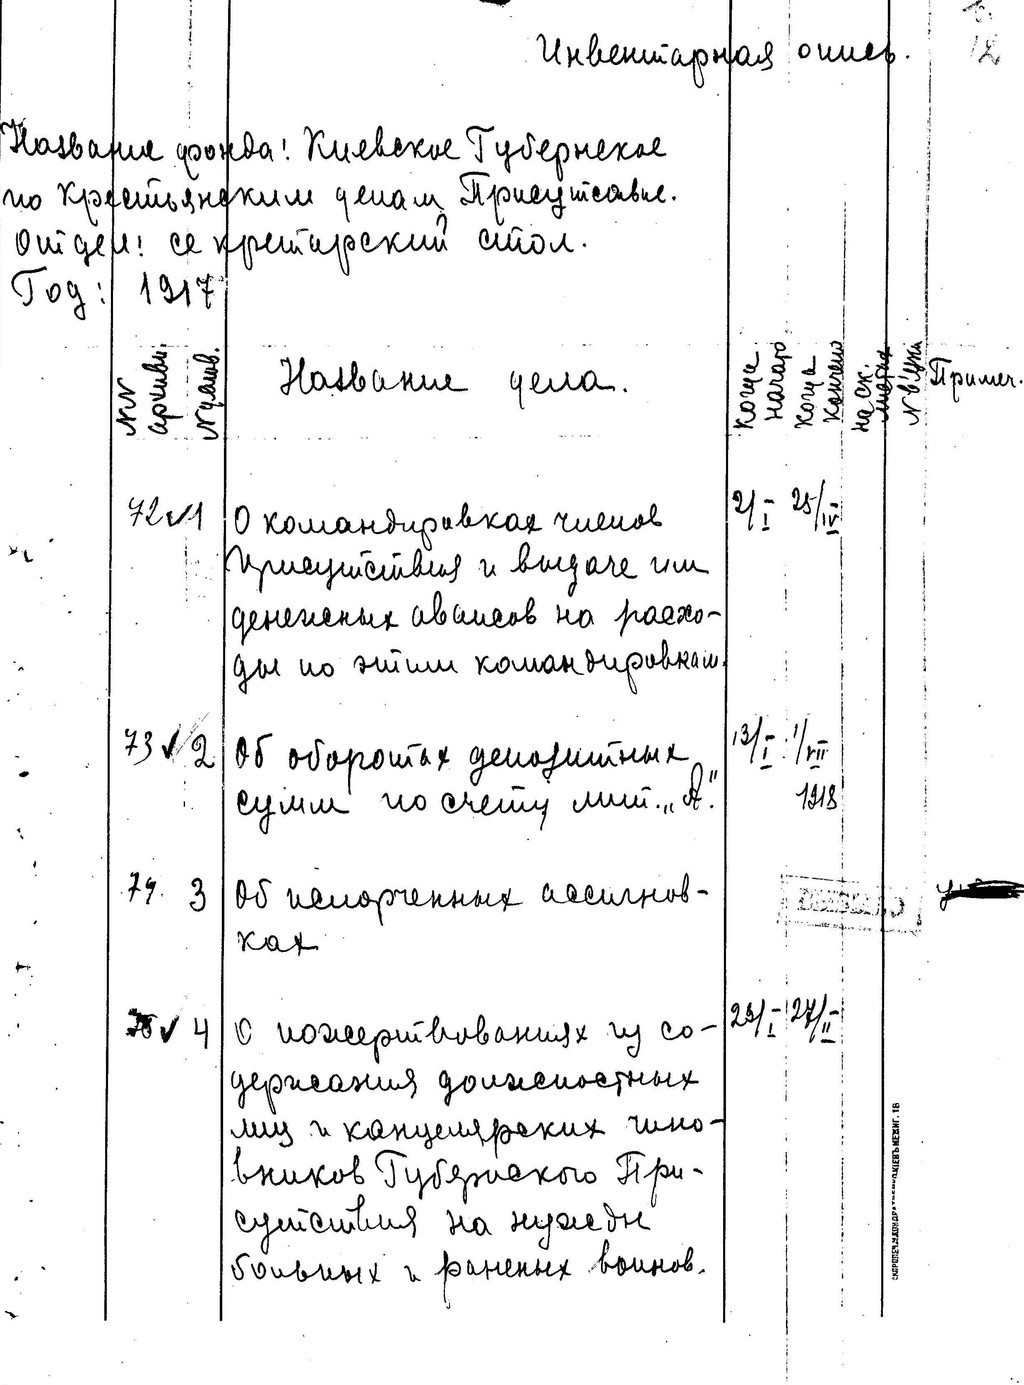 12
Инвентарная опись.
Название фонда: Киевское Губернское
по Крестьянским делам Присутствие.
Отдел: секретарский стол.
Год: 1917
NN архивн.
N описи
Название дела.
когда начато
когда кончено
на ск. листах
Примеч.
72 1 О командировках членов 2/I 25/IV
Присутствия и выдаче им
денежных авансов на расхо-
ды по этим командировкам.
73 2 Об оборотах депозитных 13/I 1/VII
сумм по счету лит. „А". 1918
74. 3 Об испорченных ассигнов-
ках
75 4 О пожертвованиях из со- 29/I 27/II
держания должностных
лиц и канцелярских чино-
вников Губернского При-
сутствия на нужды
больных и раненых воинов.